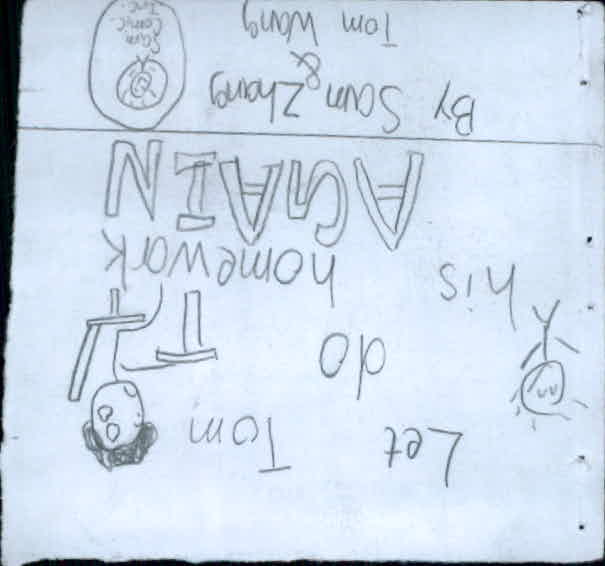 Let Tom
do
his homework
AGAIN
By Sam Zhang
&
Tom Wang
Sam
Comic
Inc.